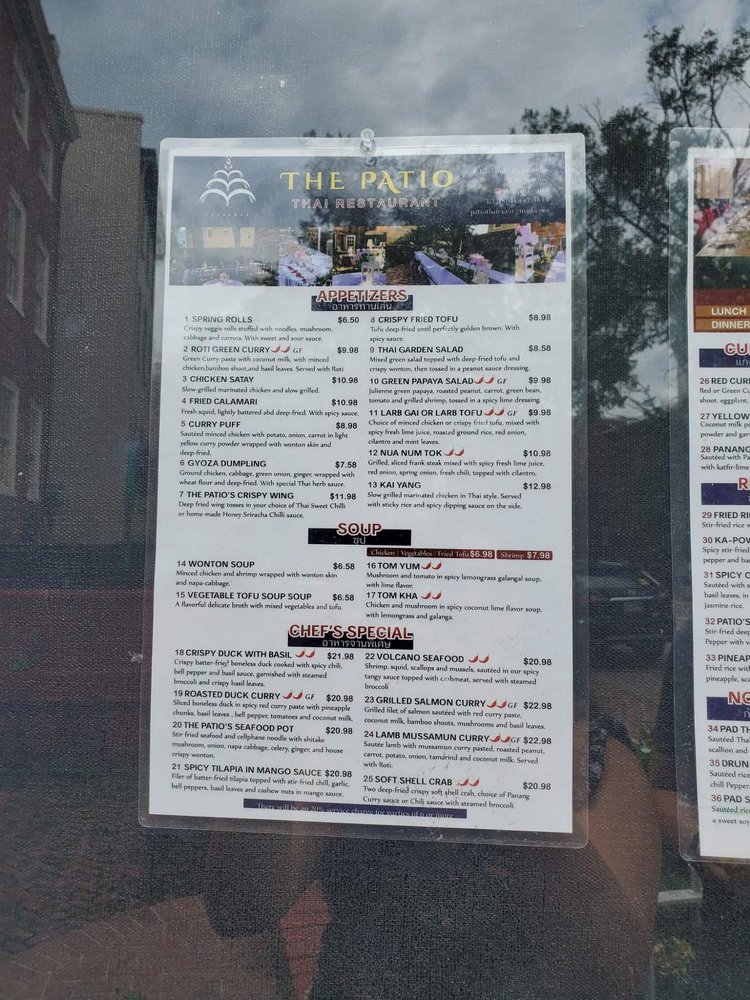 THE PATIO
THAI RESTAURANT
APPETIZERS
อาหารทานเล่น
1 SPRING ROLLS $6.50
Crispy veggie rolls stuffed with noodles, mushroom,
cabbage and carrots. With sweet and sour sauce.
2 ROTI GREEN CURRY GF $9.98
Green Curry paste with coconut milk, with minced
chicken,bamboo shoot,and basil leaves. Served with Roti
3 CHICKEN SATAY $10.98
Slow-grilled marinated chicken and slow grilled.
4 FRIED CALAMARI $10.98
Fresh squid, lightly battered abd deep-fried. With spicy sauce.
5 CURRY PUFF $8.98
Sautéed minced chicken with potato, onion, carrot in light
yellow curry powder wrapped with wonton skin and
deep-fried.
6 GYOZA DUMPLING $7.58
Ground chicken, cabbage, green onion, ginger, wrapped with
wheat flour and deep-fried. With special Thai herb sauce.
7 THE PATIO'S CRISPY WING $11.98
Deep fried wing tosses in your choice of Thai Sweet Chilli
or home-made Honey Sriracha Chilli sauce.
8 CRISPY FRIED TOFU $8.98
Tofu deep-fried until perfectly golden brown. With
spicy sauce.
9 THAI GARDEN SALAD $8.58
Mixed green salad topped with deep-fried tofu and
crispy wonton, then tossed in a peanut sauce dressing.
10 GREEN PAPAYA SALAD GF $9.98
Julienne green papaya, roasted peanut, carrot, green bean,
tomato and grilled shrimp, tossed in a spicy lime dressing.
11 LARB GAI OR LARB TOFU GF $9.98
Choice of minced chicken or crispy fried tofu, mixed with
spicy fresh lime juice, roasted ground rice, red onion,
cilantro and mint leaves.
12 NUA NUM TOK $10.98
Grilled, sliced frank steak mixed with spicy fresh lime juice,
red onion, spring onion, fresh chili, topped with cilantro.
13 KAI YANG $12.98
Slow grilled marinated chicken in Thai style. Served
with sticky rice and spicy dipping sauce on the side.
SOUP
ซุป
Chicken / Vegetables / Fried Tofu $6.98 Shrimp $7.98
14 WONTON SOUP $6.58
Minced chicken and shrimp wrapped with wonton skin
and napa-cabbage.
15 VEGETABLE TOFU SOUP SOUP $6.58
A flavorful delicate broth with mixed vegetables and tofu.
16 TOM YUM
Mushroom and tomato in spicy lemongrass galangal soup,
with lime flavor.
17 TOM KHA
Chicken and mushroom in spicy coconut lime flavor soup,
with lemongrass and galanga.
CHEF'S SPECIAL
อาหารจานพิเศษ
18 CRISPY DUCK WITH BASIL $21.98
Crispy batter-frie/ boneless duck cooked with spicy chili,
bell pepper and basil sauce, garnished with steamed
broccoli and crispy basil leaves.
19 ROASTED DUCK CURRY GF $20.98
Sliced boneless duck in spicy red curry paste with pineapple
chunks, basil leaves , bell pepper, tomatoes and coconut milk.
20 THE PATIO'S SEAFOOD POT $20.98
Stir fried seafood and cellphane noodle with shitake
mushroom, onion, napa cabbage, celery, ginger, and house
crispy wonton.
21 SPICY TILAPIA IN MANGO SAUCE $20.98
Filer of batter-fried tilapia topped with stir-fried chill, garlic,
bell peppers, basil leaves and cashew nuts in mango sauce.
22 VOLCANO SEAFOOD $20.98
Shrimp, squid, scallops and mussels, sautéed in our spicy
tangy sauce topped with crabmeat, served with steamed
broccoli
23 GRILLED SALMON CURRY GF $22.98
Grilled filet of salmon sautéed with red curry paste,
coconut milk, bamboo shoots, mushrooms and basil leaves.
24 LAMB MUSSAMUN CURRY GF $22.98
Sautée lamb with mussamun curry pasted, roasted peanut,
carrot, potato, onion, tamarind and coconut milk. Served
with Roti.
25 SOFT SHELL CRAB $20.98
Two deep-fried crispy soft shell crab, choice of Panang
Curry sauce or Chili sauce with steamed broccoli.
There will be an 20% service charge for parties of 6 or more
LUNCH
DINNER
26 RED
Red or Green
shoot, eggplant,
27 YELLOW
Coconut milk
powder and
28 PANANG
Sautéed with
with kaffir-lime
29 FRIED
Stir-fried rice
30
Spicy stir-fried
pepper and
31 SPICY
Sautéed with
basil leaves, in
Jasmine rice.
32 PATIO'S
Stir-fried
Pepper with
33
Fried rice with
pineapple,
34 PAD
Sautéed
scallion and
35 DRUN
Sautéed rice
chill Pepper
36 PAD
Sautéed
a sweet